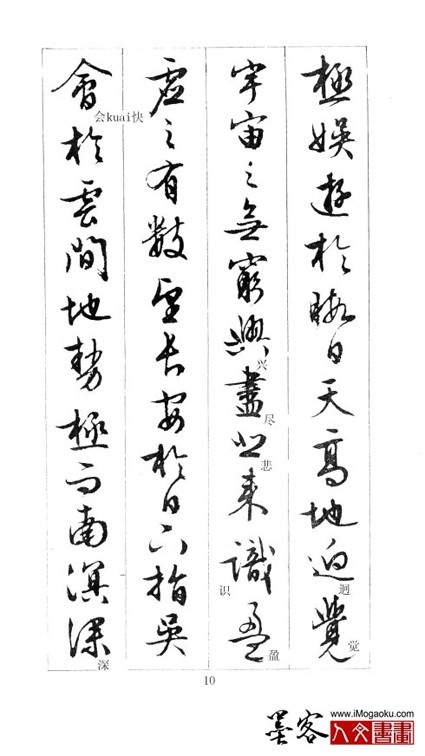 極娛遊於暇日天高地迥覺
迥
觉
宇宙之無窮興盡悲來識盈
兴
尽
悲
识
盈
虛之有數望長安於日下指吳
會於雲間地勢極而南溟深
会kuai快
深
10
墨客
www.iMogaoku.com
人文書畫